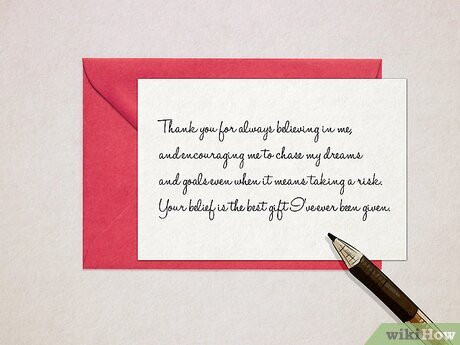 Thank you for always believing in me,
and encouraging me to chase my dreams
and goals even when it means taking a risk.
Your belief is the best gift I've ever been given.
wikiHow